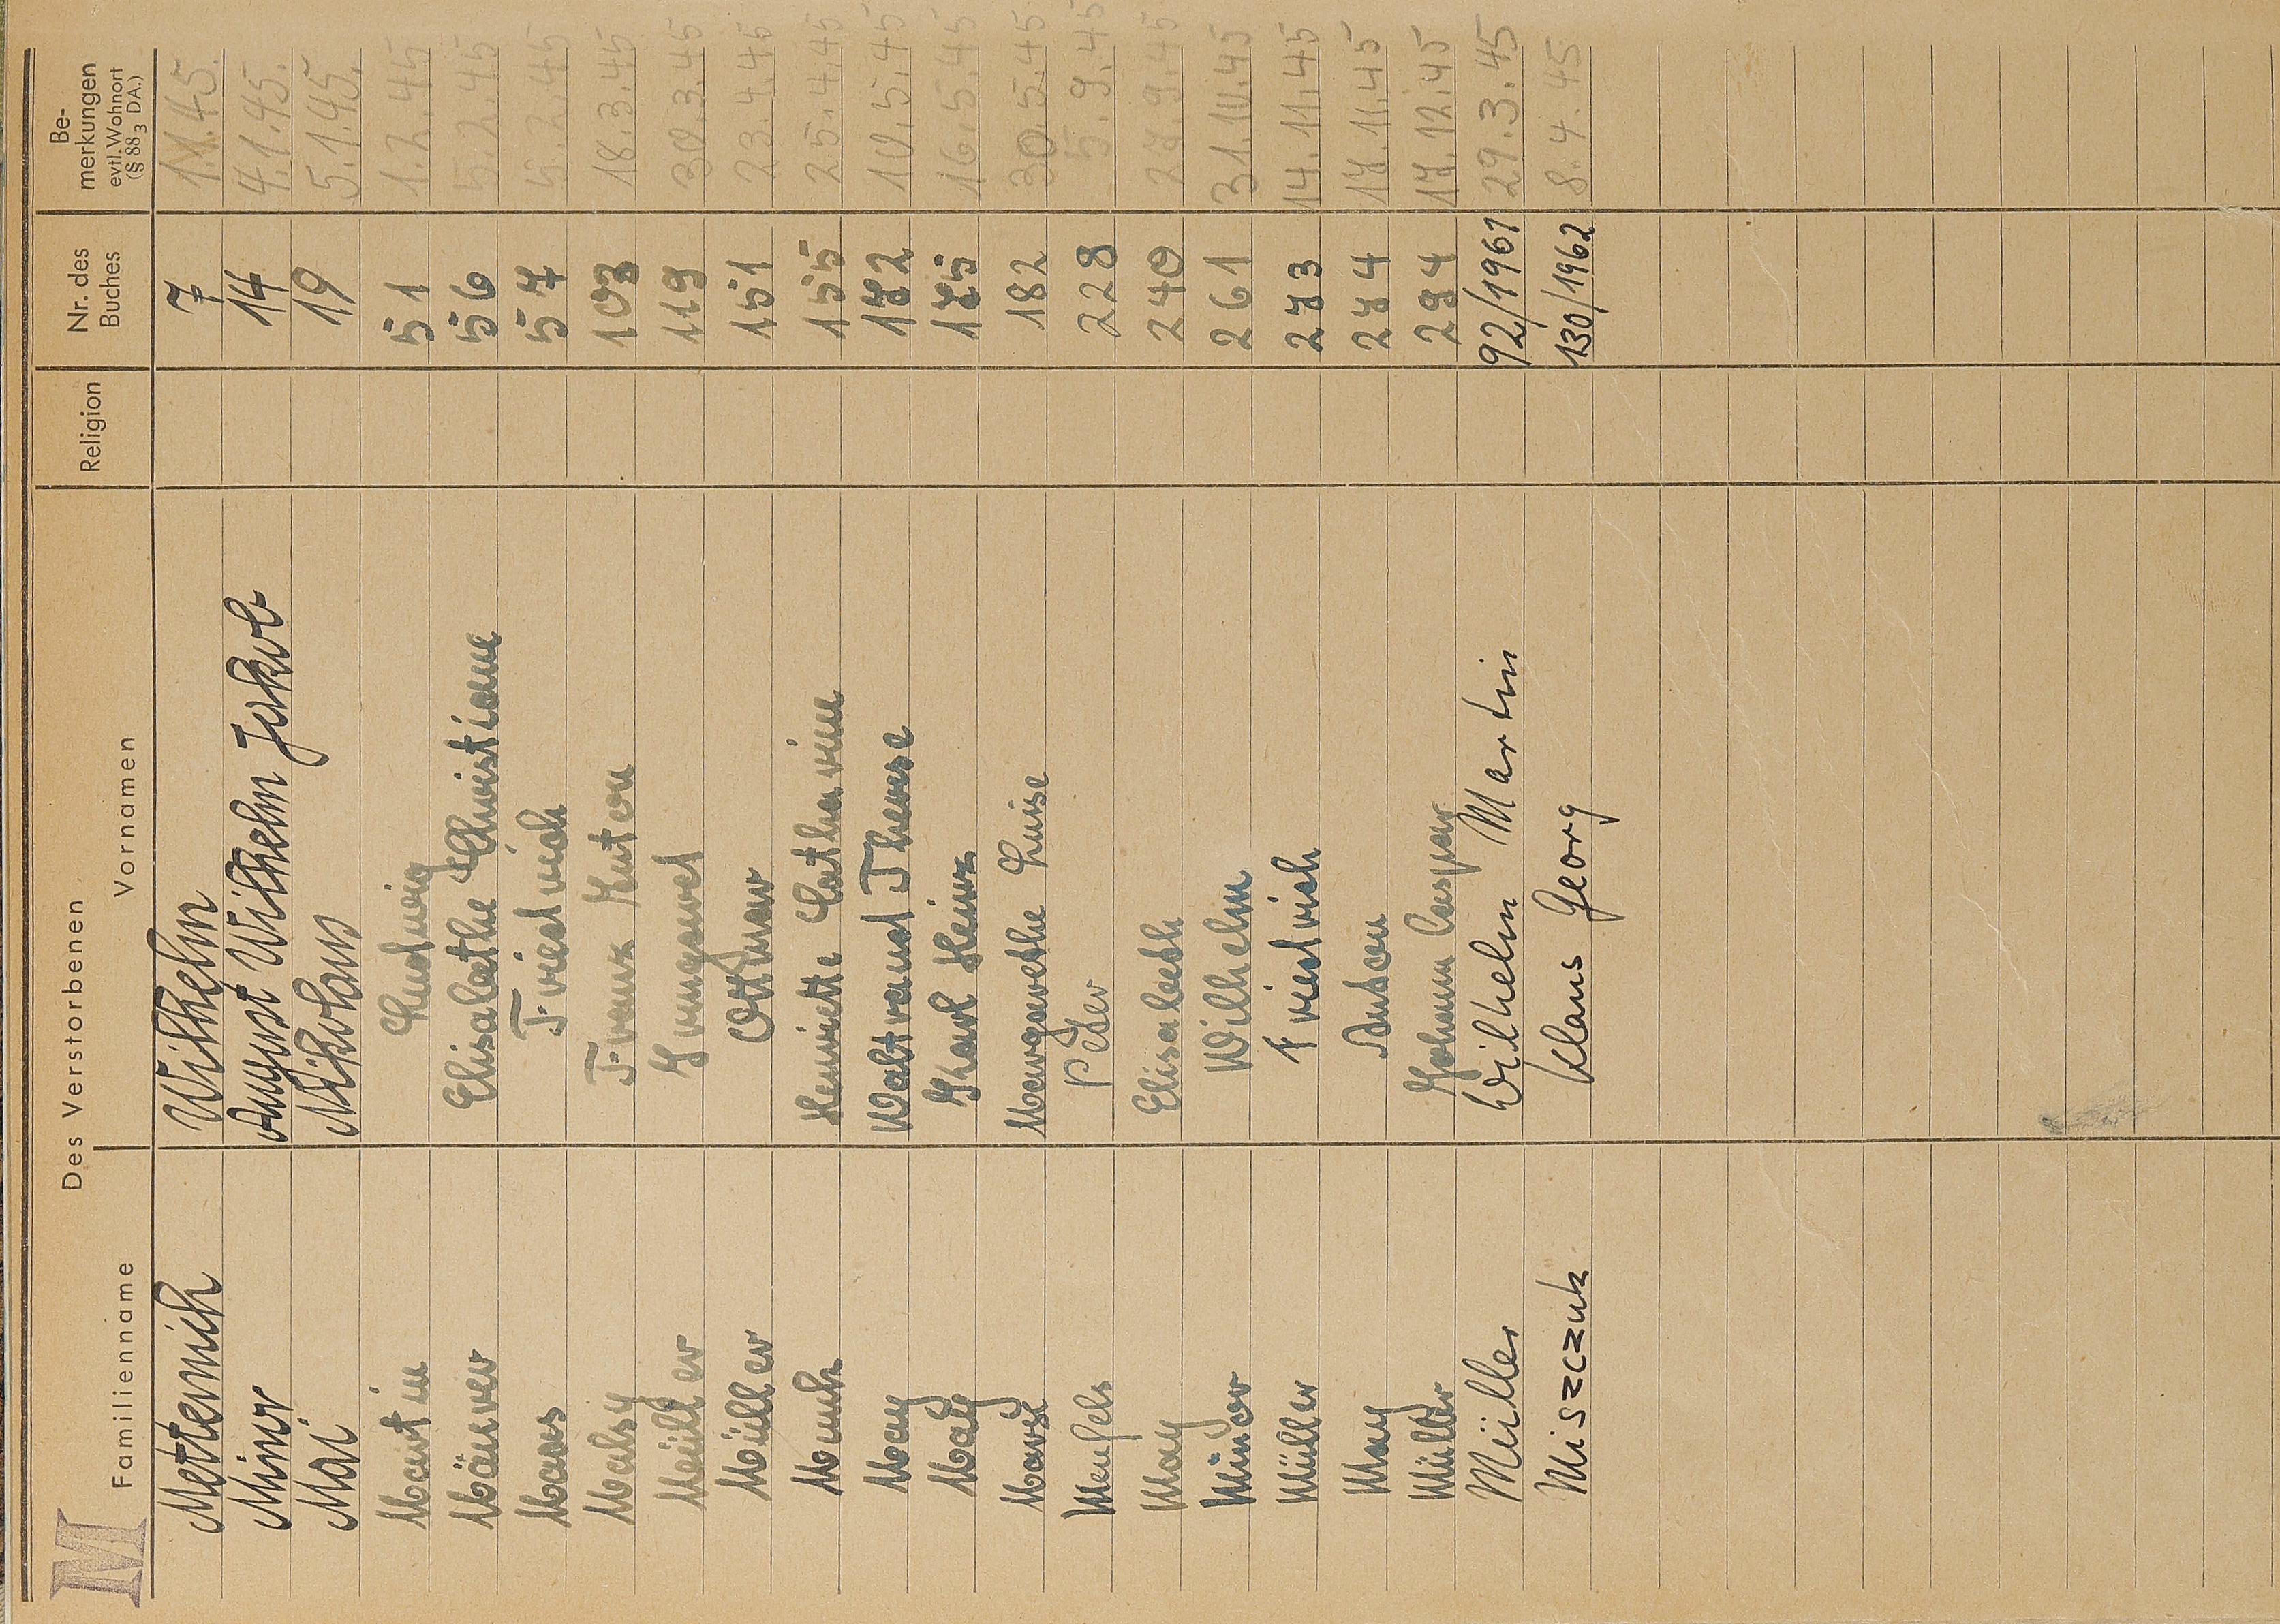 M
Des Verstorbenen
Familienname Vornamen Religion Nr. des Buches Be-merkungen evtl. Wohnort (§ 88 3 DA.)
Metternich Wilhelm 7 1.1.45.
Minor August Wilhelm Jakob 14 4.1.45.
Mai Nikolaus 19 5.1.45.
Martin Ludwig 51 1.2.45
Mäurer Elisabethe Christiane 56 5.2.45
Maas Friedrich 57 5.2.45
Malsy Franz Anton 103 18.3.45
Müller Irmgard 119 30.3.45
Müller Ottmar 151 23.4.45
Munk Henriette Catharine 155 25.4.45
May Waltraud Therese 172 10.5.45
May Karl Heinz 175 16.5.45
Margarethe Luise 182 30.5.45
Menfels Peter 228 5.9.45
May Elisabeth 240 27.9.45
Minor Wilhelm 261 31.10.45
Müller Friedrich 273 14.11.45
May Anton 274 17.11.45
Müller Johann Caspar 294 17.12.45
Müller Wilhelm Martin 92/1961 29.3.45
Miszczuk Klaus Georg 130/1962 8.4.45